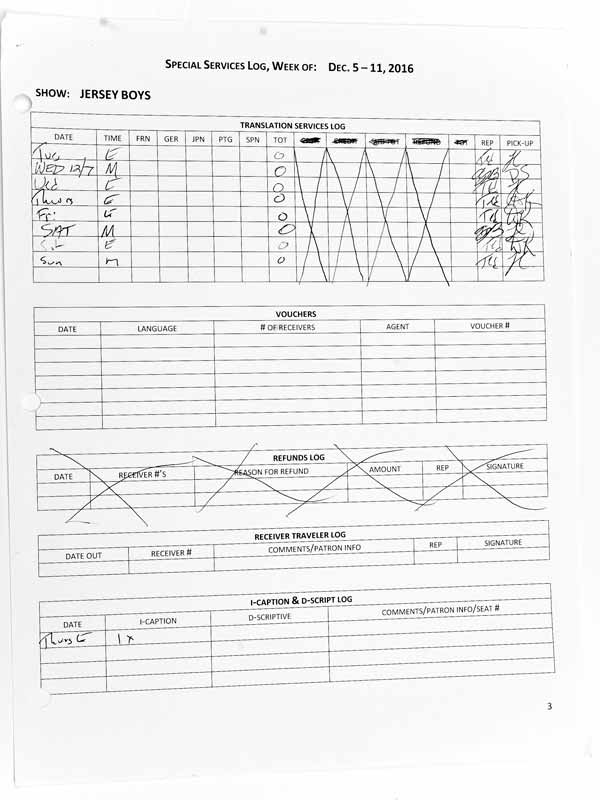 SPECIAL SERVICES LOG, WEEK OF: DEC. 5 – 11, 2016
SHOW: JERSEY BOYS
TRANSLATION SERVICES LOG
DATE TIME FRN GER JPN PTG SPN TOT REP PICK-UP
Tue E 0
WED 12/7 M 0 DS
Wed E 0
Thurs E 0
Fri E 0
SAT M 0
Sat E 0
Sun M 0
VOUCHERS
DATE LANGUAGE # OF RECEIVERS AGENT VOUCHER #
REFUNDS LOG
DATE RECEIVER #'S REASON FOR REFUND AMOUNT REP SIGNATURE
RECEIVER TRAVELER LOG
DATE OUT RECEIVER # COMMENTS/PATRON INFO REP SIGNATURE
I-CAPTION & D-SCRIPT LOG
DATE I-CAPTION D-SCRIPTIVE COMMENTS/PATRON INFO/SEAT #
Thurs E 1x
3